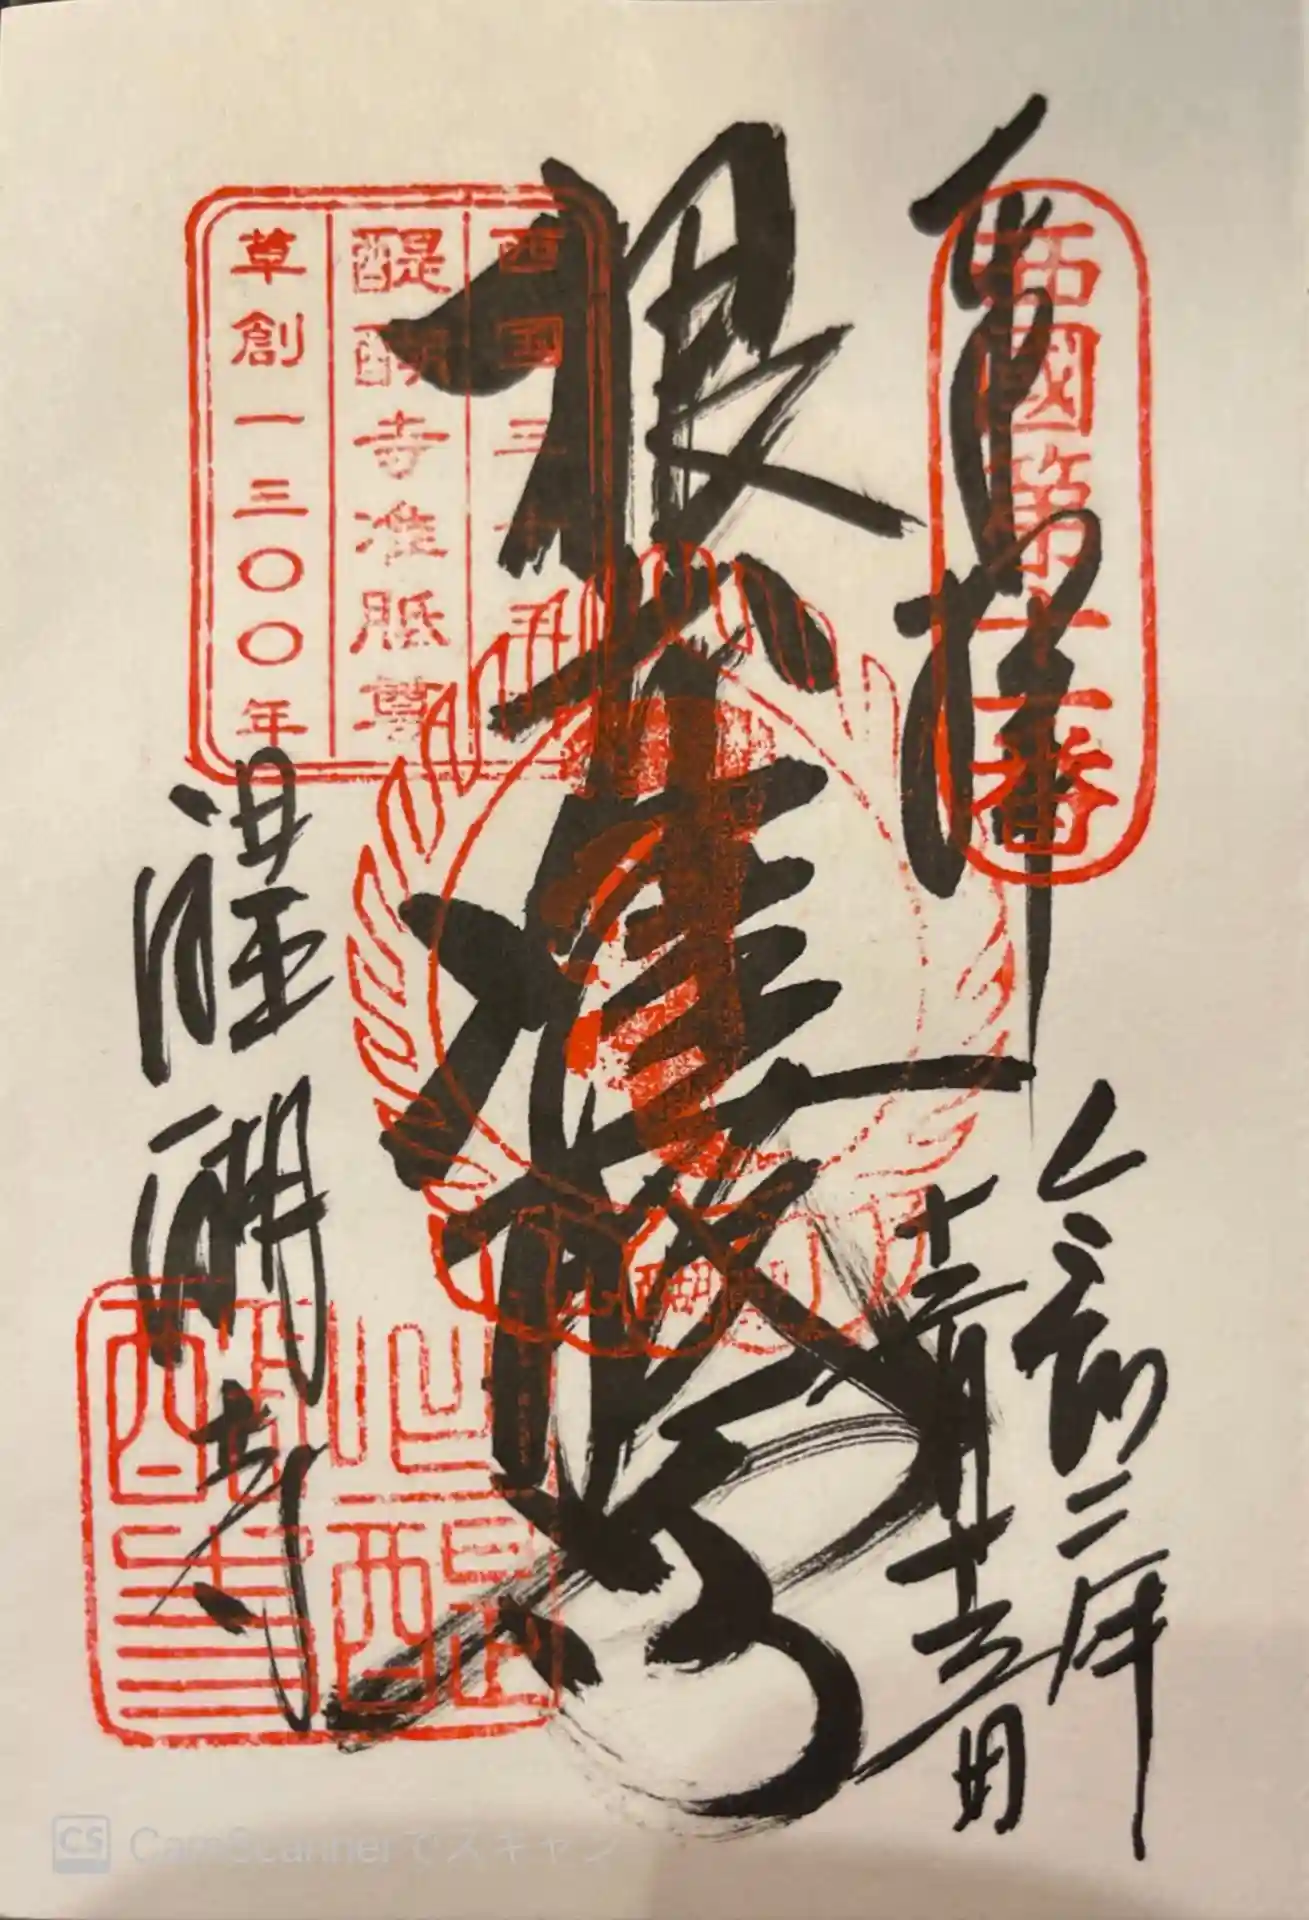 奉拝
西國第十一番
令和二年
十二月十三日
根本准胝尊
西国三十三所
醍醐寺准胝尊
草創一三〇〇年
醍醐寺
深雪山醍醐寺
CS CamScannerでスキャン